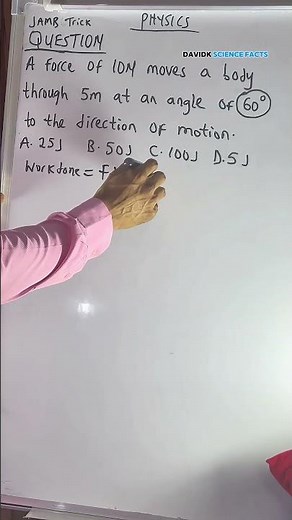 JAMB Trick PHYSICS
DAVIDK SCIENCE FACTS
QUESTION
A force of 10M moves a body
through 5m at an angle of 60°
to the direction of motion.
A. 25J B. 50J C. 100J D. 5J
Workdone = F